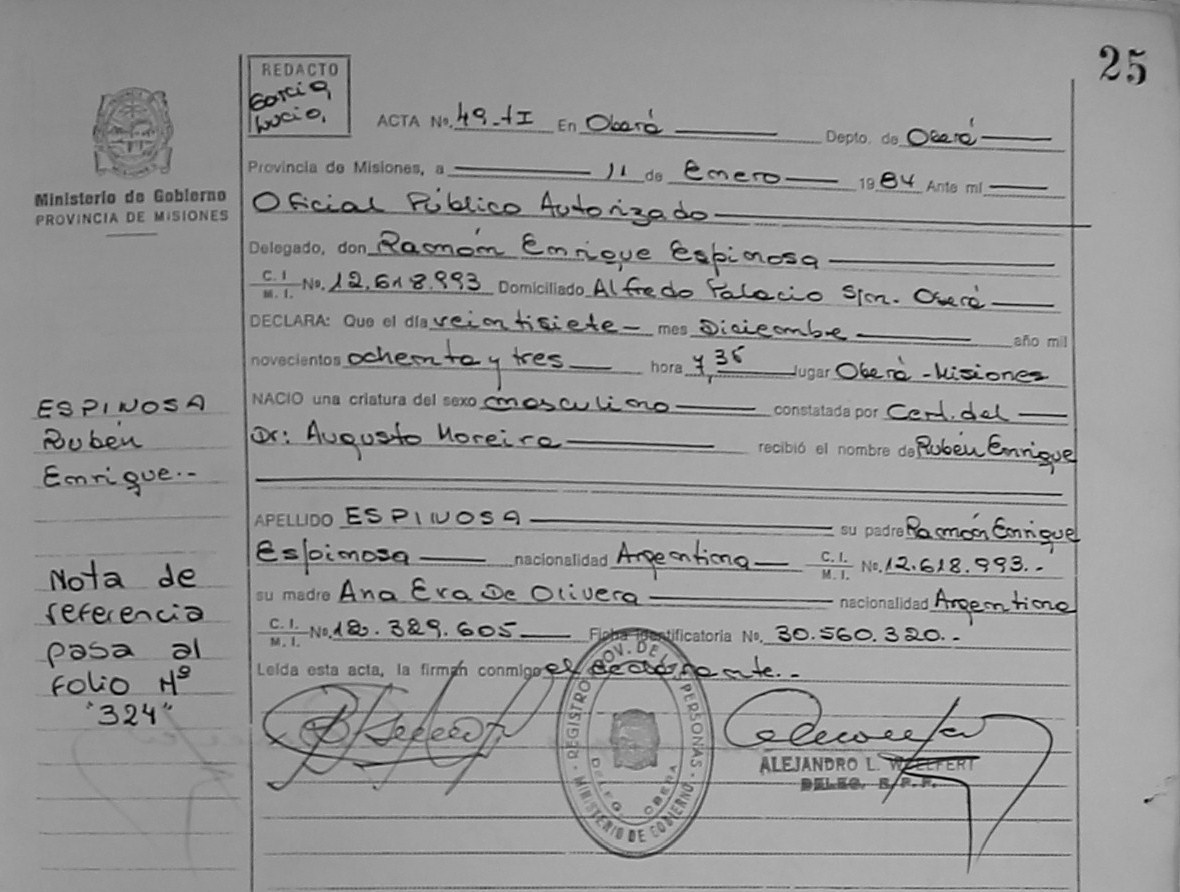 25
REDACTO
Garcia,
Lucio,
ACTA No. 49-tI En Oberá Depto. de Oberá
Ministerio de Gobierno
PROVINCIA DE MISIONES
Provincia de Misiones, a 11 de Enero 1984 Ante mí
Oficial Público Autorizado
Delegado, don Ramón Enrique Espinosa
C. I. / M. I. No. 12.618.993 Domiciliado Alfredo Palacio S/n. Oberá
DECLARA: Que el día veintisiete mes Diciembre año mil
novecientos ochenta y tres hora 7,35 lugar Oberá - Misiones
NACIO una criatura del sexo masculino constatada por Cert. del
Dr: Augusto Moreira recibió el nombre de Rubén Enrique
ESPINOSA
Rubén
Enrique.-
APELLIDO ESPINOSA su padre Ramón Enrique
Espinosa nacionalidad Argentina C. I. / M. I. No. 12.618.993.-
su madre Ana Eva De Olivera nacionalidad Argentina
C. I. / M. I. No. 12.329.605 Ficha identificatoria No. 30.560.320.-
Leída esta acta, la firman conmigo el declarante.-
Nota de
referencia
pasa al
folio Nº
"324"
REGISTRO PROV. DE LAS PERSONAS
DELEG. OBERA
MINISTERIO DE GOBIERNO
ALEJANDRO L.
DELEG. R.P.P.